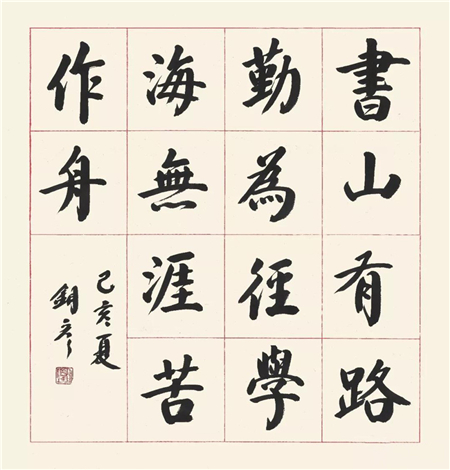 書山有路
勤為徑學
海無涯苦
作舟
己亥夏